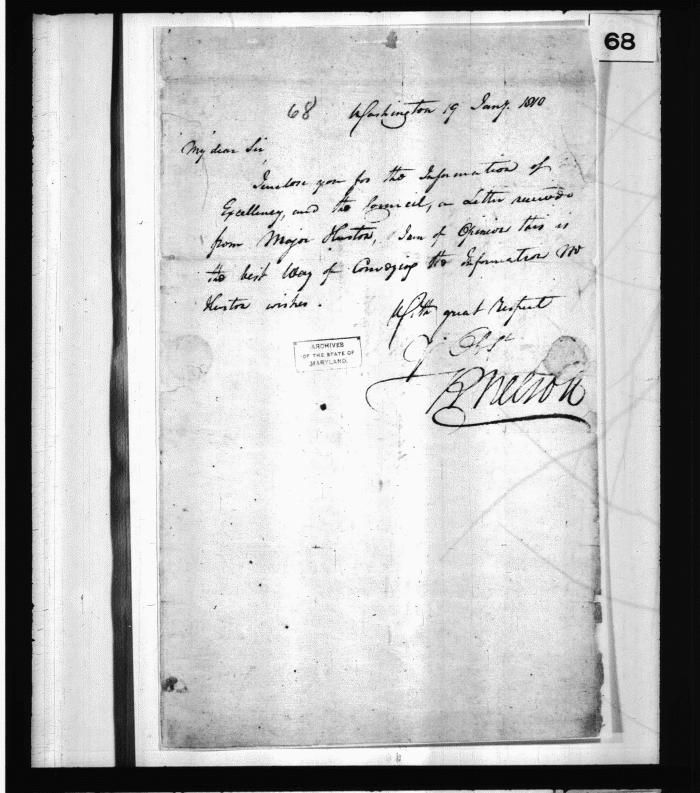 68
68 Washington 19 Jany. 1810
My dear Sir
I inclose you for the Information of
Excellency, and the Council, a Letter received
from Major Huston, I am of Opinion this is
the best Way of Conveying the Information Mr
Huston wishes.
With great Respect
Yr Obt
R Nelson
ARCHIVES
OF THE STATE OF
MARYLAND.